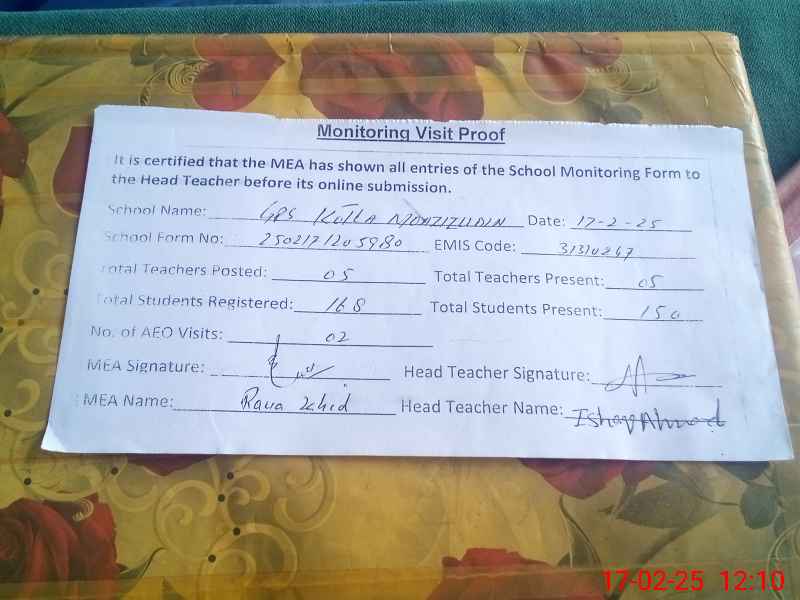 Monitoring Visit Proof
It is certified that the MEA has shown all entries of the School Monitoring Form to
the Head Teacher before its online submission.
School Name: GPS Date: 17-2-25
School Form No: 2502171205980 EMIS Code: 31310267
Total Teachers Posted: 05 Total Teachers Present: 05
Total Students Registered: 168 Total Students Present: 150
No. of AEO Visits: 02
MEA Signature: Head Teacher Signature:
MEA Name: Rana Head Teacher Name: Ahmad
17-02-25 12:10